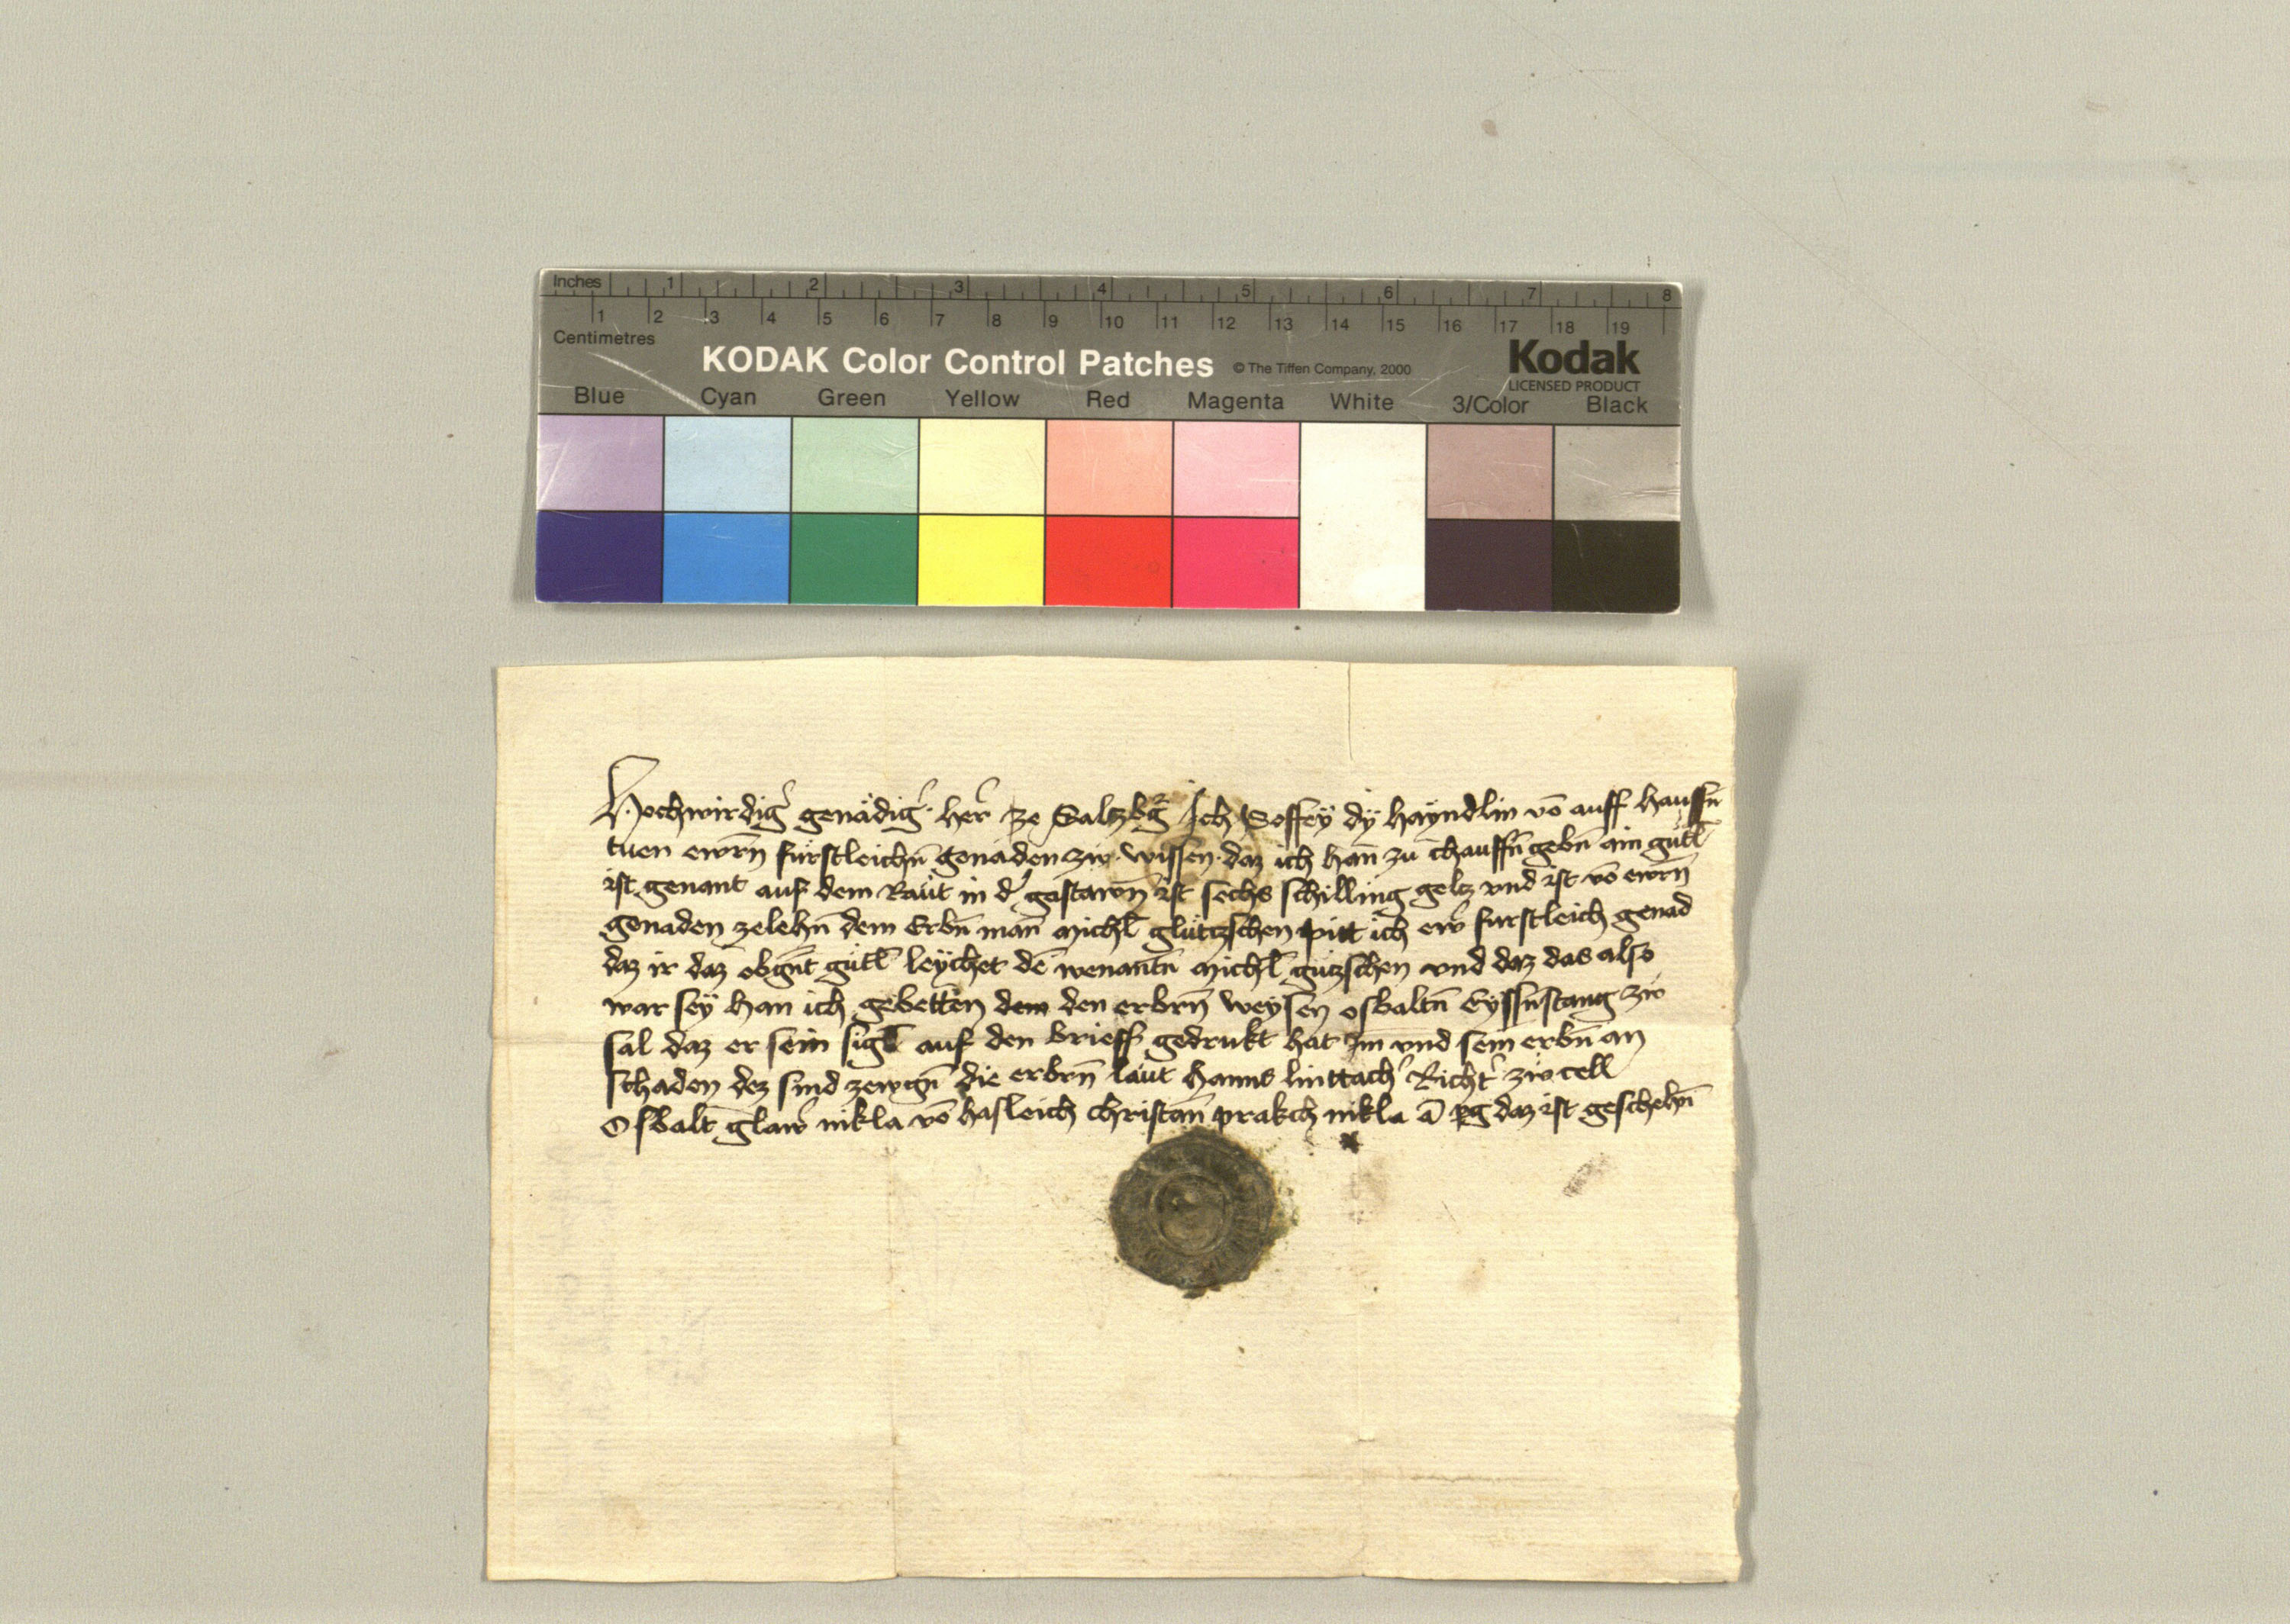 Inches 1 2 3 4 5 6 7 8
1 2 3 4 5 6 7 8 9 10 11 12 13 14 15 16 17 18 19
Centimetres
KODAK Color Control Patches © The Tiffen Company, 2000 Kodak
LICENSED PRODUCT
Blue Cyan Green Yellow Red Magenta White 3/Color Black
Hochwirdig' genädig' her' ze Saltzbg Ich Soffey dÿ haÿndlin vō auff hausn̄
tuen ewrn̄ fürstleichn̄ genäden zw wissen daz ich han zu chauffn̄ gebn̄ ain gütl
ist genant auf dem Raüt in d' gastawn̄ ist sechs schilling geltz vnd ist vō ewrn̄
genaden zelehn̄ dem Erbn̄ man̄ michl̄ glützschen pitt ich ew' furstleich genad
daz ir daz obgn̄t gütl̄ leÿchet dē wenantn̄ michl̄ gützschen vnd daz das also
war seÿ han ich gebetten dem den erbrn̄ weysen osbaltn̄ Eyssn̄stang zw
sal daz er sein sigl auf den brieff gedrukt hat Im̄ vnd sein erbn̄ an
schaden dez sind zewgn̄ die erbrn̄ läut hanns linttach' Richt' zw cell
Osbalt glaw' nikla vō hasleich christan̄ prakch nikla ā pg daz ist geschehn̄